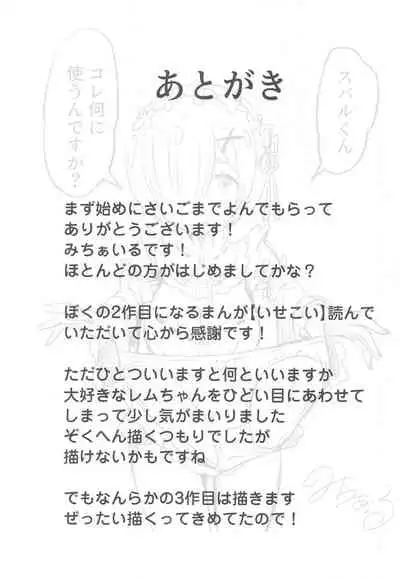 あとがき
スバルくん
コレ何に
使うんですか？
まず始めにさいごまでよんでもらって
ありがとうございます！
みちぁいるです！
ほとんどの方がはじめましてかな？
ぼくの2作目になるまんが【いせこい】読んで
いただいて心から感謝です！
ただひとついいますと何といいますか
大好きなレムちゃんをひどい目にあわせて
しまって少し気がまいりました
ぞくへん描くつもりでしたが
描けないかもですね
でもなんらかの3作目は描きます
ぜったい描くってきめてたので！